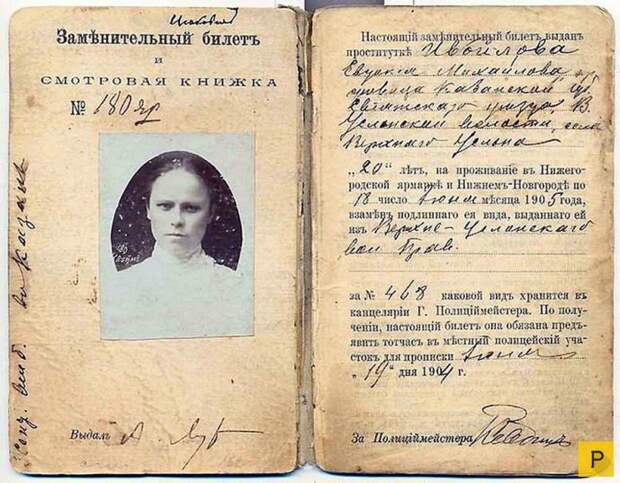 Замѣнительный билетъ
и
СМОТРОВАЯ КНИЖКА
№ 180
Выдалъ
Настоящій замѣнительный билетъ выданъ
проституткѣ
Михаилова
Казанской
уѣзда, В.
Услонской волости, села
Верхняго Услона
„20" лѣтъ, на проживаніе въ Нижего-
родской ярмаркѣ и Нижнемъ-Новгородѣ по
18 число Іюня мѣсяца 1905 года,
взамѣнъ подлиннаго ея вида, выданнаго ей
изъ Верхне-Услонскаго
вол Прав.
за № 468 каковой видъ хранится въ
канцеляріи Г. Полиціймейстера. По полу-
ченіи, настоящій билетъ она обязана предъ-
явить тотчасъ въ мѣстный полицейскій уча-
стокъ для прописки Іюня
„19" дня 1904 г.
За Полиціймейстера
P